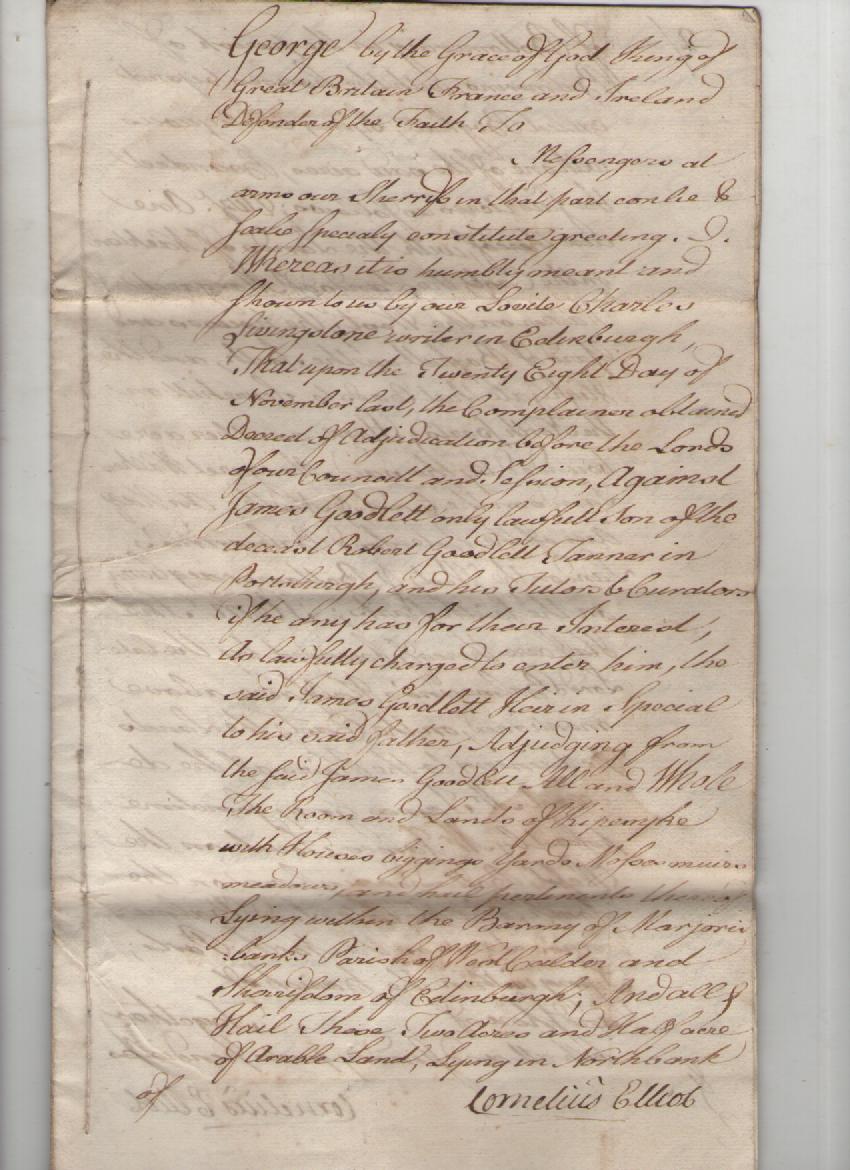 George by the Grace of God King of
Great Britain France and Ireland
Defender of the Faith To
Messengers at
arms our Sherriffs in that part conlie &
sealie specialy constitute greeting.
Whereas it is humbly meant and
shown to us by our Lovite Charles
Livingstone writer in Edenburgh,
That upon the Twenty Eight Day of
November last, the Complainer obtained
Decreet of Adjudication before the Lords
of our Councill and Session, Against
James Goodlett only lawfull Son of the
deceast Robert Goodlett Tanner in
Portsburgh, and his Tutors & Curators
if he any has for their Interest,
As lawfully charged to enter him, the
said James Goodlett Heir in Special
to his said father, Adjudging from
the said James Goodlett All and Whole
The Room and Lands of
with Houses biggings yards Mosses muirs
meadows, and hail pertinents thereof
Lying within the Barony of Marjorie
banks Parish of West Calder and
Sherrifdom of Edinburgh; And all &
Hail These Two Acres and Half acre
of Arable Land, Lying in Northbank
of Cornelius Elliot